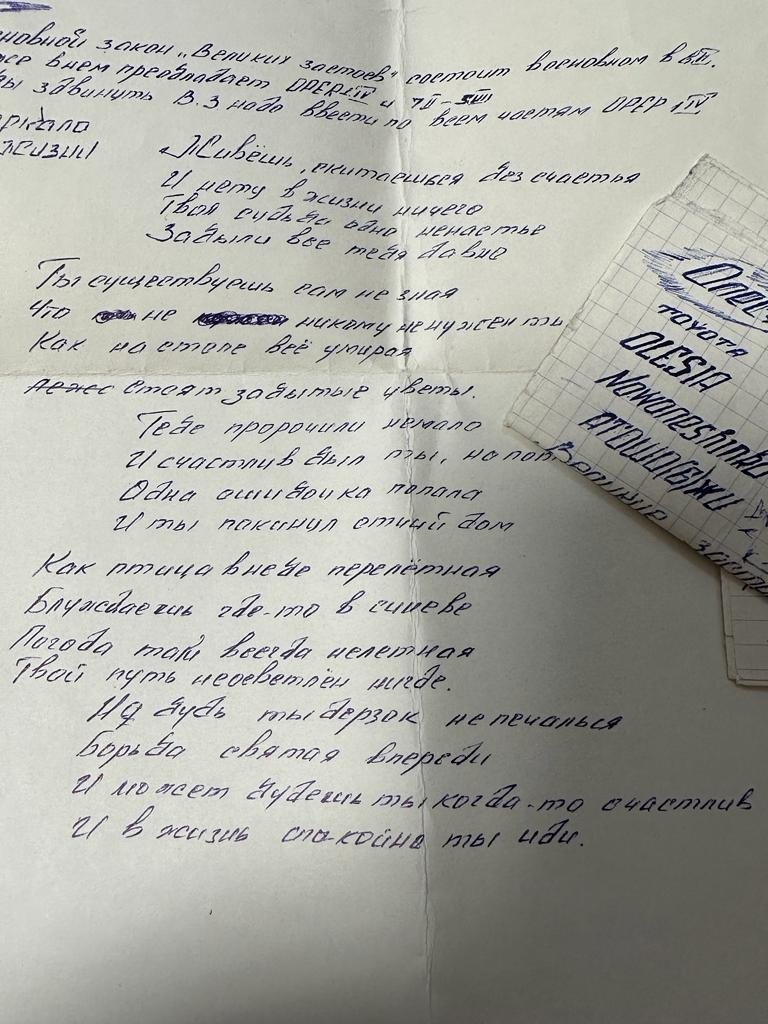 сновной закон „Великих застоев" состоит в основном в
же в нем преобладает OPEP и
ы здвинуть В.З надо ввести по всем частям OPEP IV
ркало
жизни
Живёшь, скитаешься без счастья
И нету в жизни ничего
Твоя судьба одно ненастье
Забыли все тебя давно
Ты существуешь сам не зная
Что не никому ненужен ты
Как на столе всё умирая
стоят забытые цветы.
Тебе пророчили немало
И счастлив был ты, но пот
Одна ошибочка попала
И ты покинул отчий дом
Как птица в небе перелётная
Блуждаешь где-то в синеве
Погода там всегда нелетная
Твой путь неосветлён нигде.
Но будь ты дерзок не печалься
Борьба святая впереди
И может будешь ты когда-то счастлив
И в жизнь спокойно ты иди.
TOYOTA
OLESIA
Великие заст